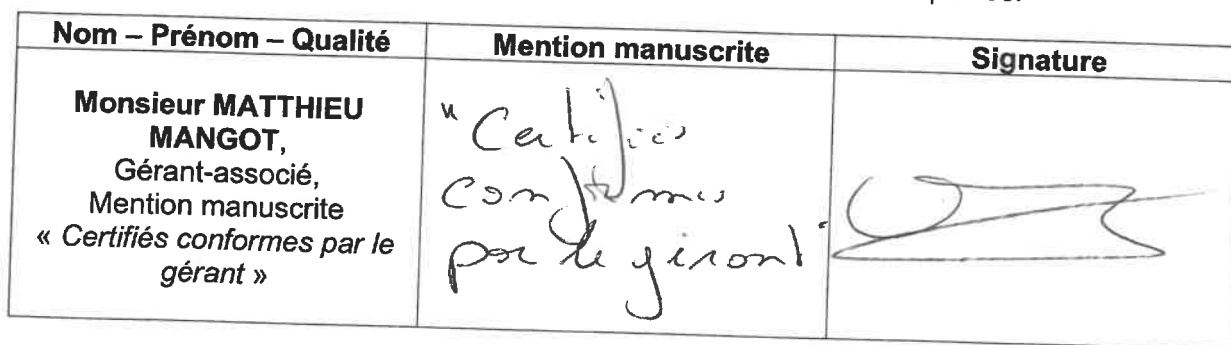 Nom – Prénom – Qualité
Mention manuscrite
Signature
Monsieur MATTHIEU
MANGOT,
Gérant-associé,
Mention manuscrite
« Certifiés conformes par le
gérant »
"Certifiés
conformes
par le gérant"